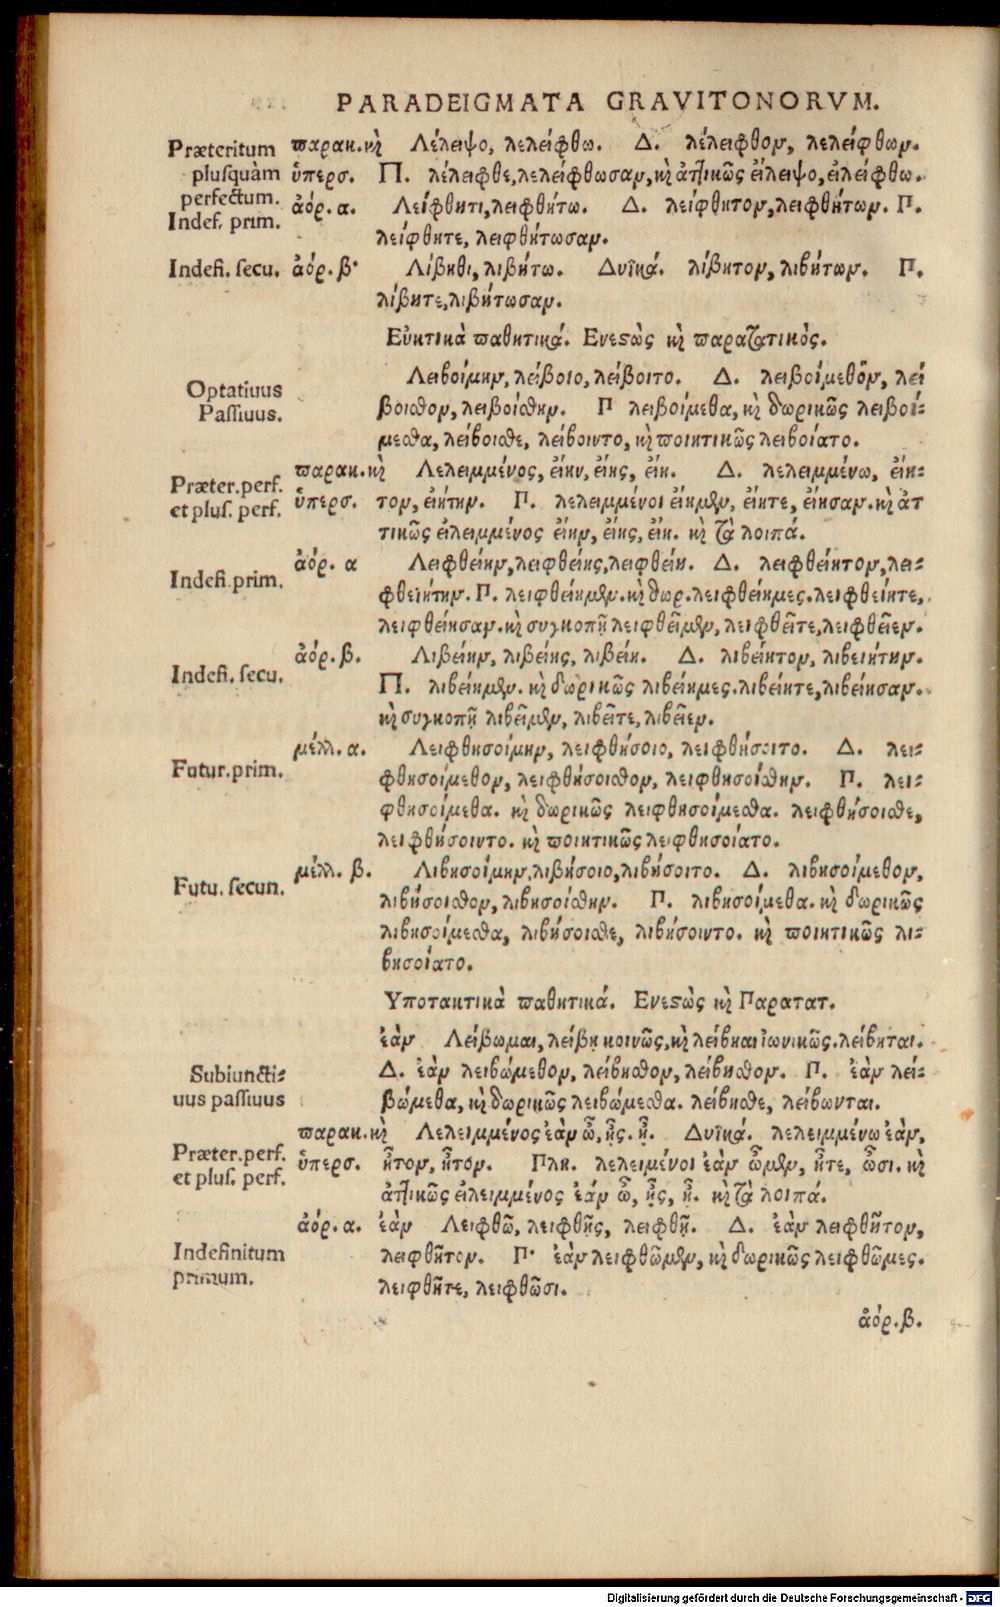 PARADEIGMATA GRAVITONORVM.
Præteritum παρακ. καὶ Λέλειψο, λελείφθω. Δ. λέλειφθον, λελείφθων.
plusquàm ὑπερσ. Π. λέλειφθε, λελείφθωσαν, καὶ ἀττικῶς εἴλειψο, εἰλείφθω.
perfectum.
Indef. prim. ἀόρ. α. Λείφθητι, λειφθήτω. Δ. λείφθητον, λειφθήτων. Π.
λείφθητε, λειφθήτωσαν.
Indefi. secu. ἀόρ. β. Λίβηθι, λιβήτω. Δυϊκά. λίβητον, λιβήτων. Π.
λίβητε, λιβήτωσαν.
Εὐκτικὰ παθητικά. Ενεστὼς καὶ παρατατικὸς.
Λειβοίμην, λείβοιο, λείβοιτο. Δ. λειβοίμεθον, λεί
Optatiuus
Passiuus. βοισθον, λειβοίσθην. Π λειβοίμεθα, καὶ δωρικῶς λειβοί-
μεσθα, λείβοισθε, λείβοιντο, καὶ ποιητικῶς λειβοίατο.
Præter. perf. παρακ. καὶ Λελειμμένος, εἴην, εἴης, εἴη. Δ. λελειμμένω, εἴη-
et plus. perf. ὑπερσ. τον, εἰήτην. Π. λελειμμένοι εἴημεν, εἴητε, εἴησαν. καὶ ἀτ
τικῶς εἰλειμμένος εἴην, εἴης, εἴη. καὶ τὰ λοιπά.
Indefi. prim. ἀόρ. α Λειφθείην, λειφθείης, λειφθείη. Δ. λειφθείητον, λει-
φθειήτην. Π. λειφθείημεν. καὶ δωρ. λειφθείημες. λειφθείητε,
λειφθείησαν. καὶ συγκοπῇ λειφθεῖμεν, λειφθεῖτε, λειφθεῖεν.
Indefi. secu. ἀόρ. β. Λιβείην, λιβείης, λιβείη. Δ. λιβείητον, λιβειήτην.
Π. λιβείημεν. καὶ δωρικῶς λιβείημες. λιβείητε, λιβείησαν.
καὶ συγκοπῇ λιβεῖμεν, λιβεῖτε, λιβεῖεν.
Futur. prim. μέλλ. α. Λειφθησοίμην, λειφθήσοιο, λειφθήσοιτο. Δ. λει-
φθησοίμεθον, λειφθήσοισθον, λειφθησοίσθην. Π. λει-
φθησοίμεθα. καὶ δωρικῶς λειφθησοίμεσθα. λειφθήσοισθε,
λειφθήσοιντο. καὶ ποιητικῶς λειφθησοίατο.
Futu. secun. μέλλ. β. Λιβησοίμην, λιβήσοιο, λιβήσοιτο. Δ. λιβησοίμεθον,
λιβήσοισθον, λιβησοίσθην. Π. λιβησοίμεθα. καὶ δωρικῶς
λιβησοίμεσθα, λιβήσοισθε, λιβήσοιντο. καὶ ποιητικῶς λι-
βησοίατο.
Υποτακτικὰ παθητικά. Ενεστὼς καὶ Παρατατ.
ἐὰν Λείβωμαι, λείβῃ κοινῶς, καὶ λείβηαι ἰωνικῶς. λείβηται.
Subiuncti- Δ. ἐὰν λειβώμεθον, λείβησθον, λείβησθον. Π. ἐὰν λει-
uus passiuus βώμεθα, καὶ δωρικῶς λειβώμεσθα. λείβησθε, λείβωνται.
Præter. perf. παρακ. καὶ Λελειμμένος ἐὰν ὦ, ᾖς. ᾖ. Δυϊκά. λελειμμένω ἐὰν,
et plus. perf. ὑπερσ. ἦτον, ἦτον. Πλη. λελειμένοι ἐὰν ὦμεν, ἦτε, ὦσι. καὶ
ἀττικῶς εἰλειμμένος ἐὰν ὦ, ᾖς, ᾖ. καὶ τὰ λοιπά.
Indefinitum ἀόρ. α. ἐὰν Λειφθῶ, λειφθῇς, λειφθῇ. Δ. ἐὰν λειφθῆτον,
primum. λειφθῆτον. Π. ἐὰν λειφθῶμεν, καὶ δωρικῶς λειφθῶμες.
λειφθῆτε, λειφθῶσι.
ἀόρ. β.
Digitalisierung gefördert durch die Deutsche Forschungsgemeinschaft - DFG